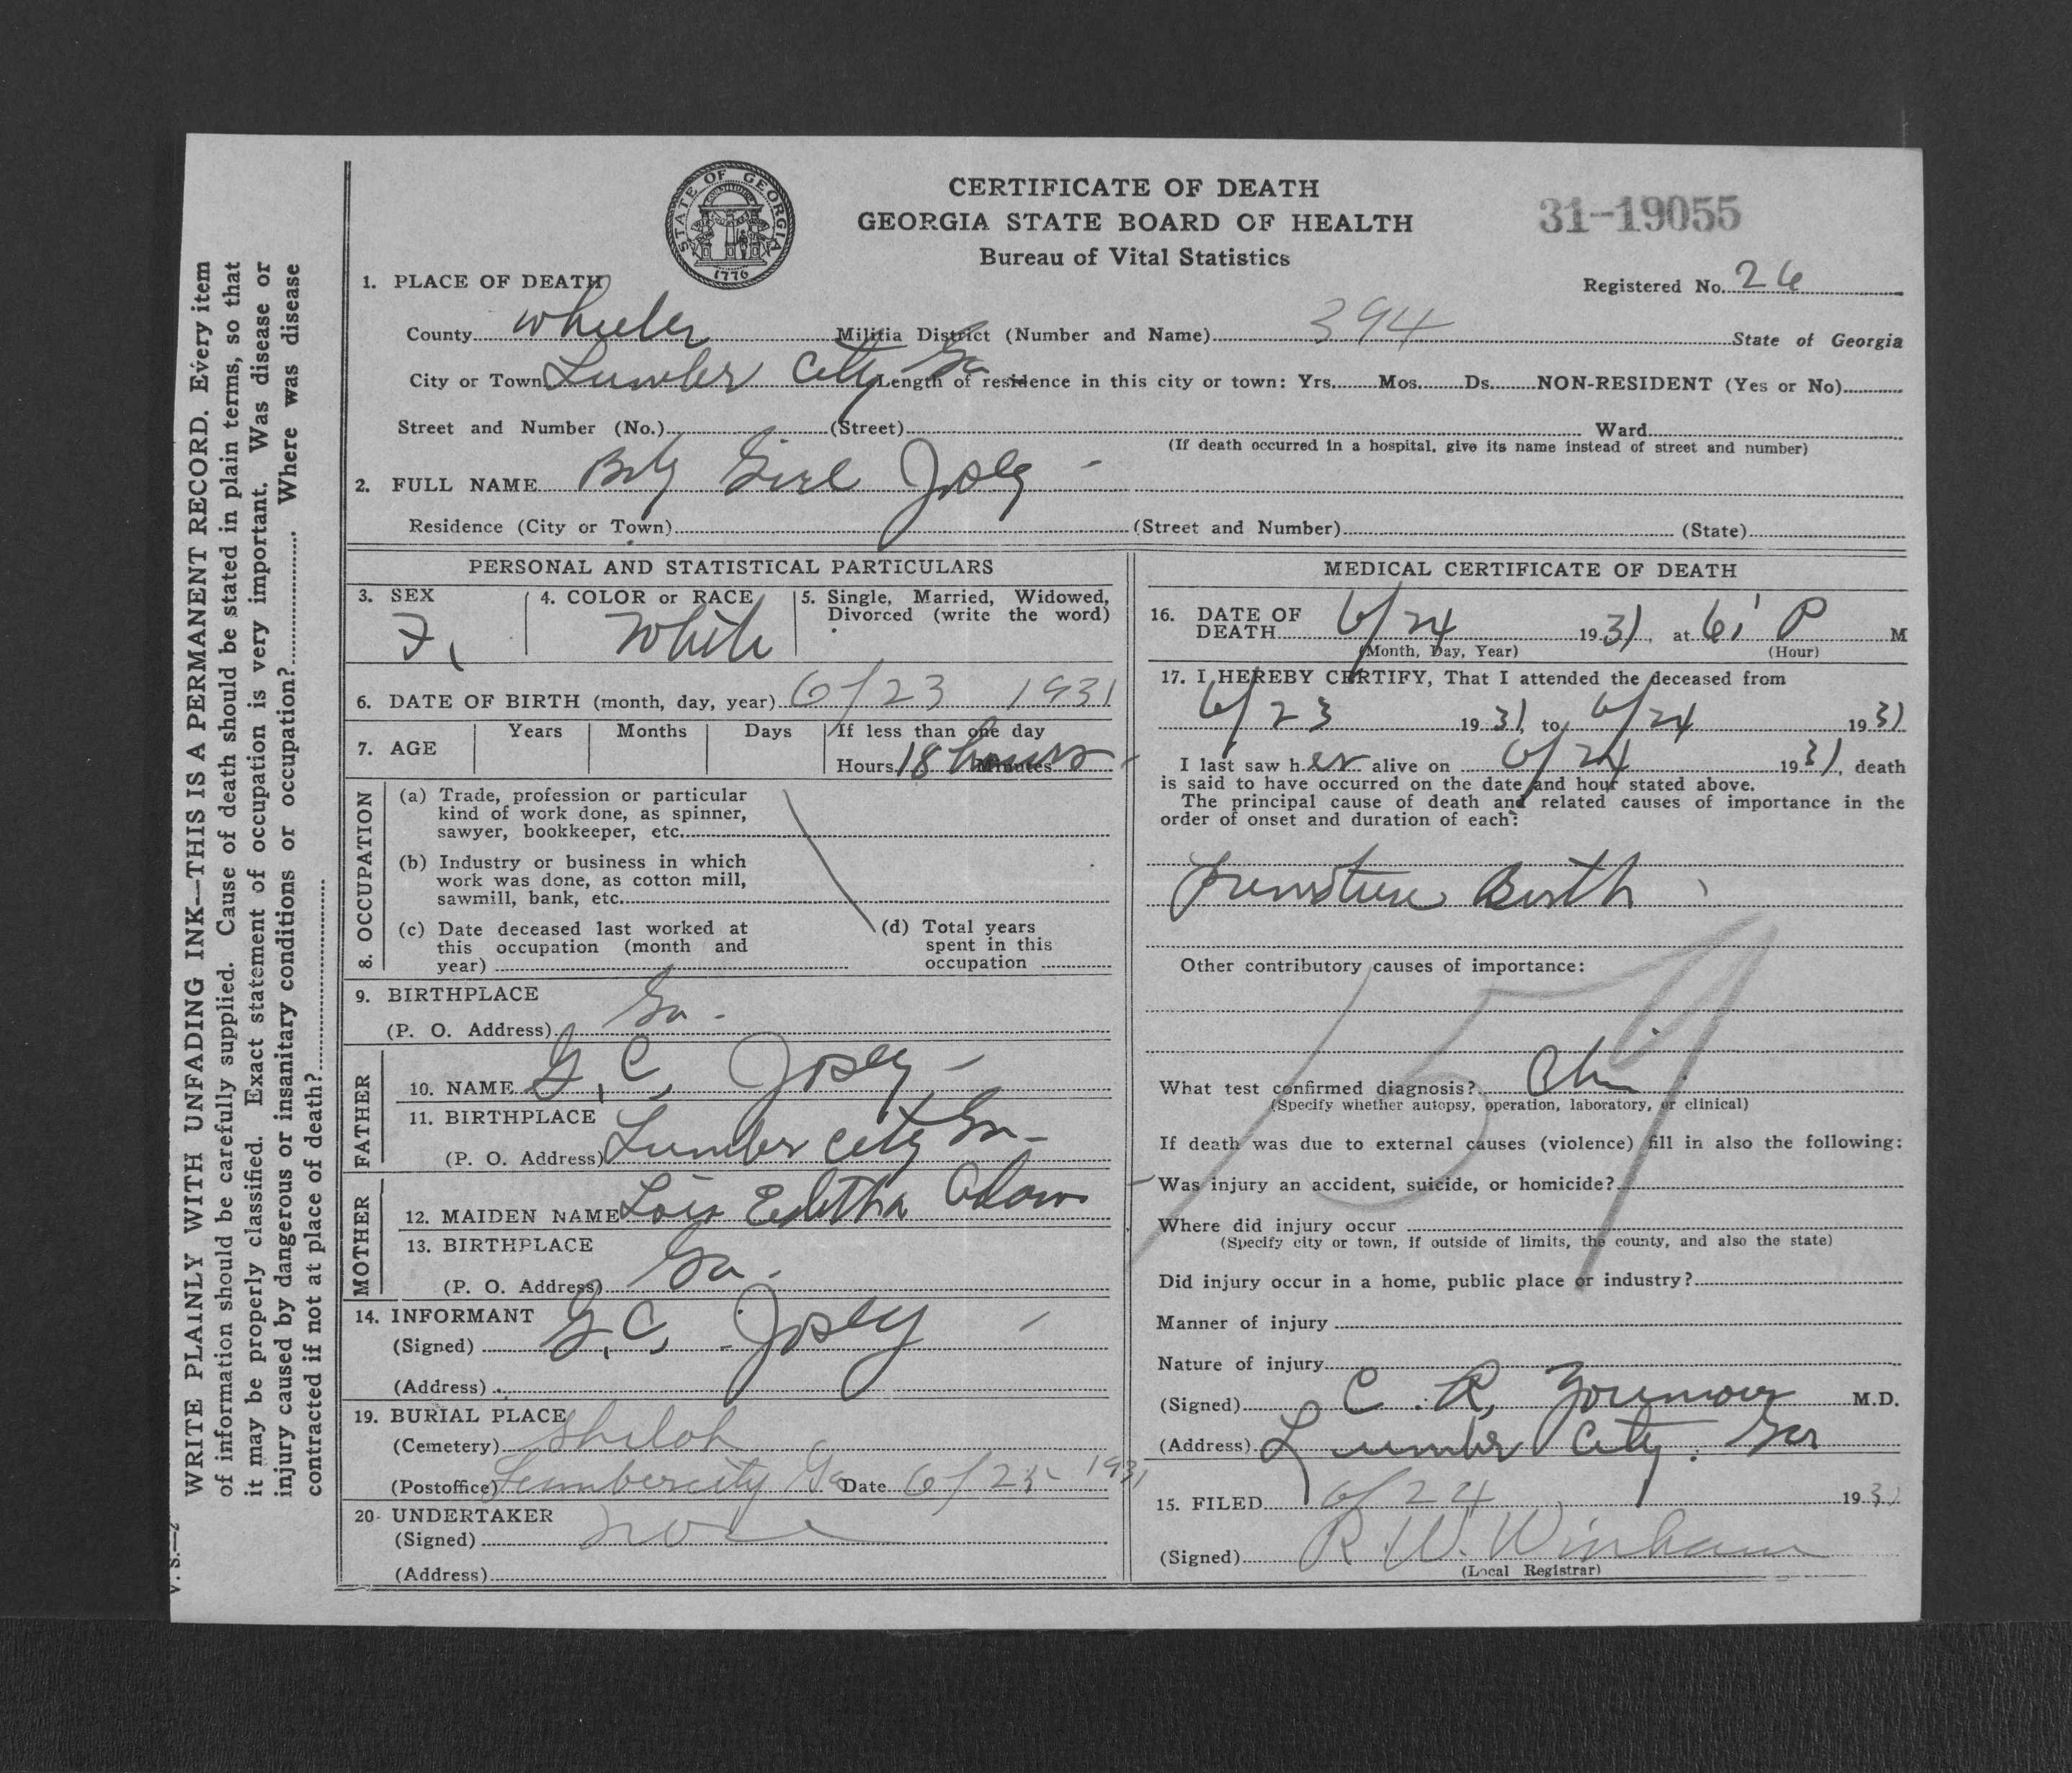 CERTIFICATE OF DEATH
GEORGIA STATE BOARD OF HEALTH
Bureau of Vital Statistics
31-19055
STATE OF GEORGIA
CONSTITUTION
1776
Registered No. 26
1. PLACE OF DEATH
County Wheeler Militia District (Number and Name) 394 State of Georgia
City or Town Lumber City Ga Length of residence in this city or town: Yrs. Mos. Ds. NON-RESIDENT (Yes or No)
Street and Number (No.) (Street) Ward
(If death occurred in a hospital, give its name instead of street and number)
2. FULL NAME Girl Josey
Residence (City or Town) (Street and Number) (State)
PERSONAL AND STATISTICAL PARTICULARS
3. SEX F. 4. COLOR or RACE White 5. Single, Married, Widowed, Divorced (write the word)
6. DATE OF BIRTH (month, day, year) 6/23 1931
7. AGE Years Months Days If less than one day
Hours 18 hours Minutes
8. OCCUPATION
(a) Trade, profession or particular
kind of work done, as spinner,
sawyer, bookkeeper, etc.
(b) Industry or business in which
work was done, as cotton mill,
sawmill, bank, etc.
(c) Date deceased last worked at
this occupation (month and
year)
(d) Total years
spent in this
occupation
9. BIRTHPLACE
(P. O. Address) Ga.
FATHER
10. NAME G. C. Josey
11. BIRTHPLACE
(P. O. Address) Lumber City Ga.
MOTHER
12. MAIDEN NAME Lois
13. BIRTHPLACE
(P. O. Address) Ga.
14. INFORMANT
(Signed) G. C. Josey
(Address)
19. BURIAL PLACE
(Cemetery) Shiloh
(Postoffice) Lumbercity Ga Date 6/25 1931
20. UNDERTAKER
(Signed) none
(Address)
MEDICAL CERTIFICATE OF DEATH
16. DATE OF
DEATH 6/24 1931, at 6 P M
(Month, Day, Year) (Hour)
17. I HEREBY CERTIFY, That I attended the deceased from
6/23 1931, to 6/24 1931
I last saw her alive on 6/24 1931, death
is said to have occurred on the date and hour stated above.
The principal cause of death and related causes of importance in the
order of onset and duration of each:
Premature Birth
Other contributory causes of importance:
What test confirmed diagnosis?
(Specify whether autopsy, operation, laboratory, or clinical)
If death was due to external causes (violence) fill in also the following:
Was injury an accident, suicide, or homicide?
Where did injury occur
(Specify city or town, if outside of limits, the county, and also the state)
Did injury occur in a home, public place or industry?
Manner of injury
Nature of injury
(Signed) C. R. M.D.
(Address) Lumber City. Ga
15. FILED 6/24 1931
(Signed) R. W. Winham
(Local Registrar)
WRITE PLAINLY WITH UNFADING INK—THIS IS A PERMANENT RECORD. Every item
of information should be carefully supplied. Cause of death should be stated in plain terms, so that
it may be properly classified. Exact statement of occupation is very important. Was disease or
injury caused by dangerous or insanitary conditions or occupation? Where was disease
contracted if not at place of death?
V. S.—2